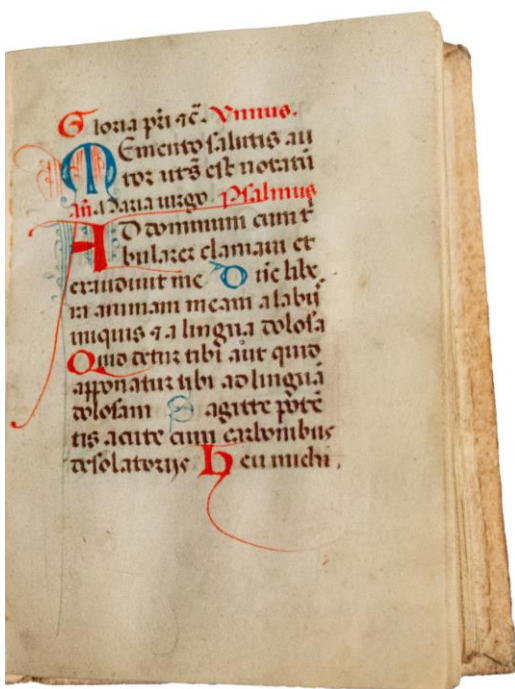 Gloria pr̄i ⁊ c̄. Ymnus.
Memento salutis au
tor ut s̄ est notatū
an̄. Maria uirgo. Psalmus
AD dominum cum t̄
bularer clamaui et
exaudiuit me Dn̄e libe
ra animam meam a labijs
iniquis ⁊ a lingua dolosa
Quid detur tibi aut quid
apponatur tibi ad linguā
dolosam Sagitte potē
tis acute cum carbonibus
desolatorijs Heu michi.